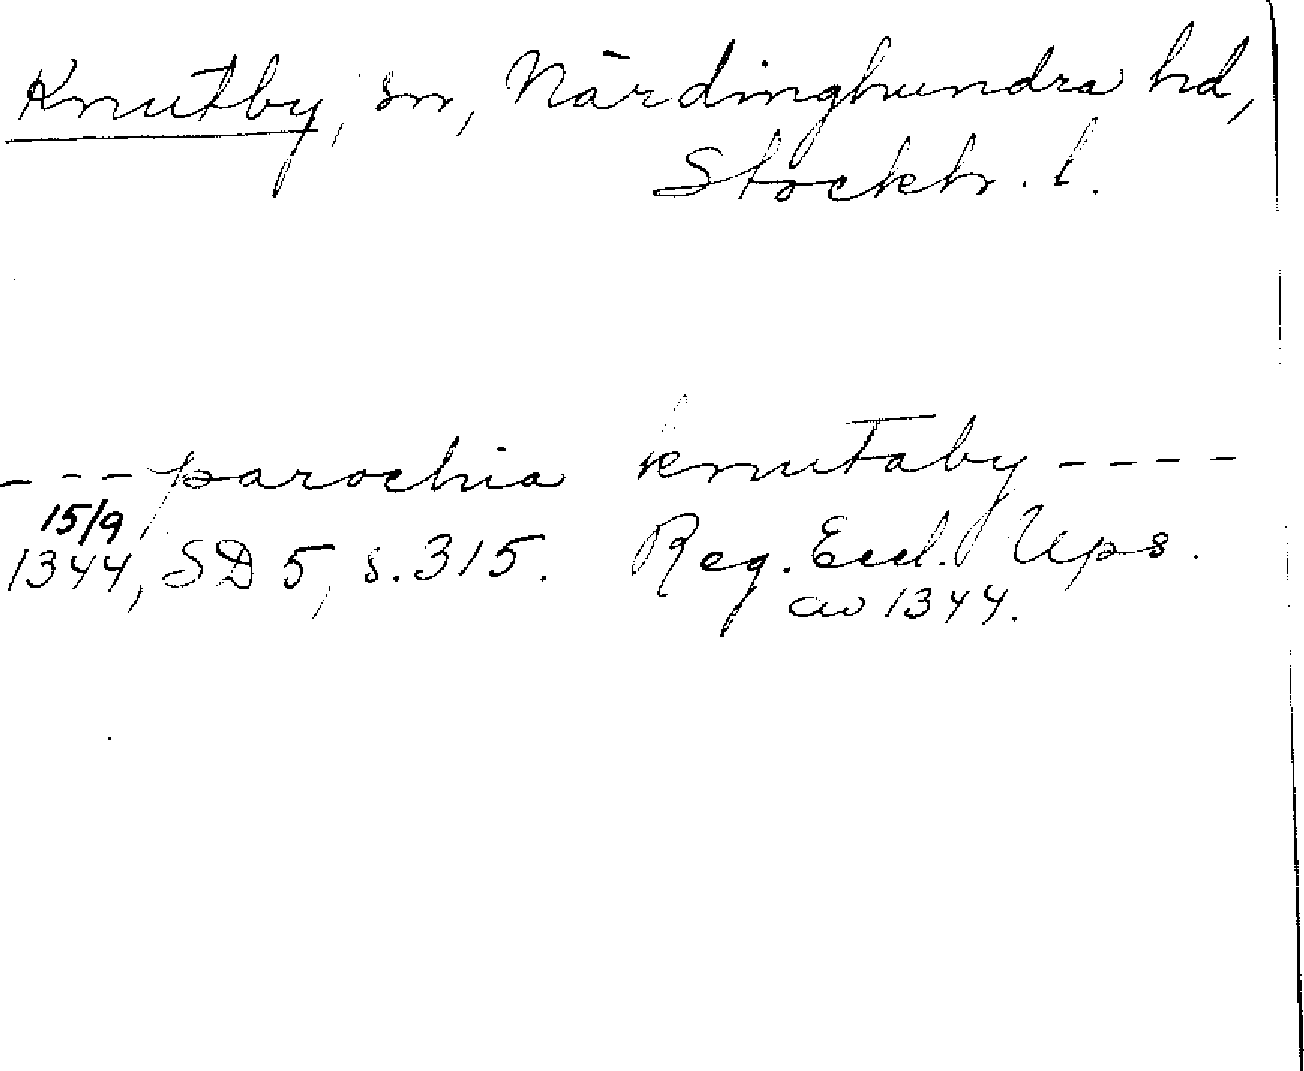 Knutby, sn, Närdinghundra hd,
Stockh. l.
--- parochia knutaby ----
15/9
1344, SD 5, s. 315. Reg. Eccl. Ups.
av 1344.